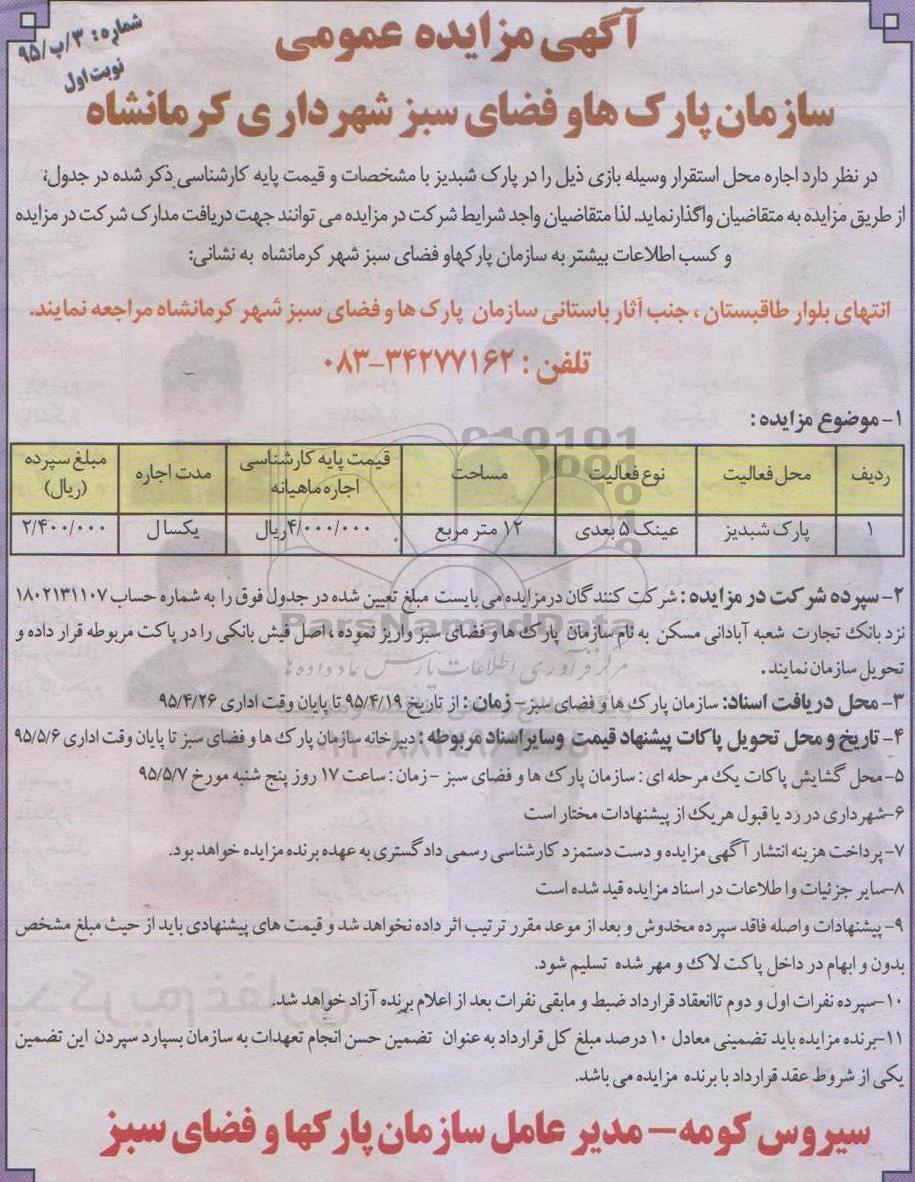 شماره: ۳/پ/۹۵
نوبت اول
آگهی مزایده عمومی
سازمان پارک ها و فضای سبز شهرداری کرمانشاه
در نظر دارد اجاره محل استقرار وسیله بازی ذیل را در پارک شبدیز با مشخصات و قیمت پایه کارشناسی ذکر شده در جدول،
از طریق مزایده به متقاضیان واگذار نماید. لذا متقاضیان واجد شرایط شرکت در مزایده می توانند جهت دریافت مدارک شرکت در مزایده
و کسب اطلاعات بیشتر به سازمان پارکهاو فضای سبز شهر کرمانشاه به نشانی:
انتهای بلوار طاقبستان ، جنب آثار باستانی سازمان پارک ها و فضای سبز شهر کرمانشاه مراجعه نمایند.
تلفن : ۳۴۲۷۷۱۶۲-۰۸۳
۱- موضوع مزایده :
ردیف محل فعالیت نوع فعالیت مساحت قیمت پایه کارشناسی اجاره ماهیانه مدت اجاره مبلغ سپرده (ریال)
۱ پارک شبدیز عینک ۵ بعدی ۱۲ متر مربع ۴/۰۰۰/۰۰۰ریال یکسال ۲/۴۰۰/۰۰۰
۲- سپرده شرکت در مزایده : شرکت کنندگان درمزایده می بایست مبلغ تعیین شده در جدول فوق را به شماره حساب ۱۸۰۲۱۳۱۱۰۷
نزد بانک تجارت شعبه آبادانی مسکن به نام سازمان پارک ها و فضای سبز واریز نموده ، اصل فیش بانکی را در پاکت مربوطه قرار داده و
تحویل سازمان نمایند .
۳- محل دریافت اسناد: سازمان پارک ها و فضای سبز- زمان : از تاریخ ۹۵/۴/۱۹ تا پایان وقت اداری ۹۵/۴/۲۶
۴- تاریخ و محل تحویل پاکات پیشنهاد قیمت وسایر اسناد مربوطه : دبیرخانه سازمان پارک ها و فضای سبز تا پایان وقت اداری ۹۵/۵/۶
۵- محل گشایش پاکات یک مرحله ای : سازمان پارک ها و فضای سبز - زمان : ساعت ۱۷ روز پنج شنبه مورخ ۹۵/۵/۷
۶-شهرداری در رد یا قبول هریک از پیشنهادات مختار است
۷- پرداخت هزینه انتشار آگهی مزایده و دست دستمزد کارشناسی رسمی دادگستری به عهده برنده مزایده خواهد بود.
۸-سایر جزئیات واطلاعات در اسناد مزایده قید شده است
۹- پیشنهادات واصله فاقد سپرده مخدوش و بعد از موعد مقرر ترتیب اثر داده نخواهد شد و قیمت های پیشنهادی باید از حیث مبلغ مشخص
بدون و ابهام در داخل پاکت لاک و مهر شده تسلیم شود.
۱۰-سپرده نفرات اول و دوم تاانعقاد قرارداد ضبط و مابقی نفرات بعد از اعلام برنده آزاد خواهد شد.
۱۱-برنده مزایده باید تضمینی معادل ۱۰ درصد مبلغ کل قرارداد به عنوان تضمین حسن انجام تعهدات به سازمان بسپارد سپردن این تضمین
یکی از شروط عقد قرارداد با برنده مزایده می باشد.
سیروس کومه- مدیر عامل سازمان پارکها و فضای سبز
ParsNamadData